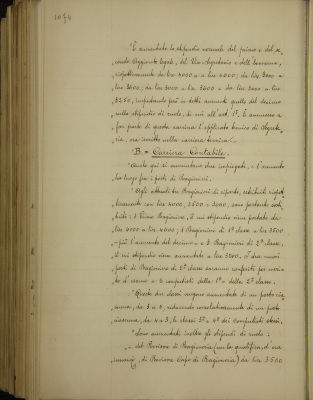 1074
È aumentato lo stipendio normale del primo e del se-
condo Aggiunto legale, del Vice-Segretario e dell'Economo,
rispettivamente da lire 4000 a lire 4500; da lire 3000 a
lire 3500; da lire 3000 a lire 3500 e da lire 3000 a lire
3250, imputando però in detti aumenti quello del decimo
sullo stipendio di ruolo, di cui all'art. 1º. È ammesso a
far parte di questa carriera l'applicato tecnico di Segrete-
ria, ora iscritto nella carriera tecnica.
B. = Carriera Contabile.
Anche qui si aumentano due impiegati, e l'aumento
ha luogo fra i posti di Ragionieri.
Agli attuali tre Ragionieri di riparto, retribuiti rispet-
tivamente con lire 4000, 3500 e 3000, sono portando costi-
tuiti: 1 Primo Ragioniere, il cui stipendio viene portato da
lire 4000 a lire 4500; 1 Ragioniere di 1ª classe a lire 3500
- più l'aumento del decimo - e 3 Ragionieri di 2ª classe,
il cui stipendio viene aumentato a lire 3200. I due nuovi
posti di Ragioniere di 2ª classe saranno conferiti per merito
e d'esame a 2 computisti della 1ª o della 2ª classe.
Queste due classi vengono aumentate di un posto cia-
scuna, da 3 a 4, riducendo correlativamente di un posto
ciascuna, da 4 a 3, le classi 3ª e 4ª dei computisti stessi.
Sono aumentati inoltre gli stipendi di ruolo:
- del Revisore di Ragioneria (con la qualifica, d'ora
innanzi, di Revisore Capo di Ragioneria) da lire 3500